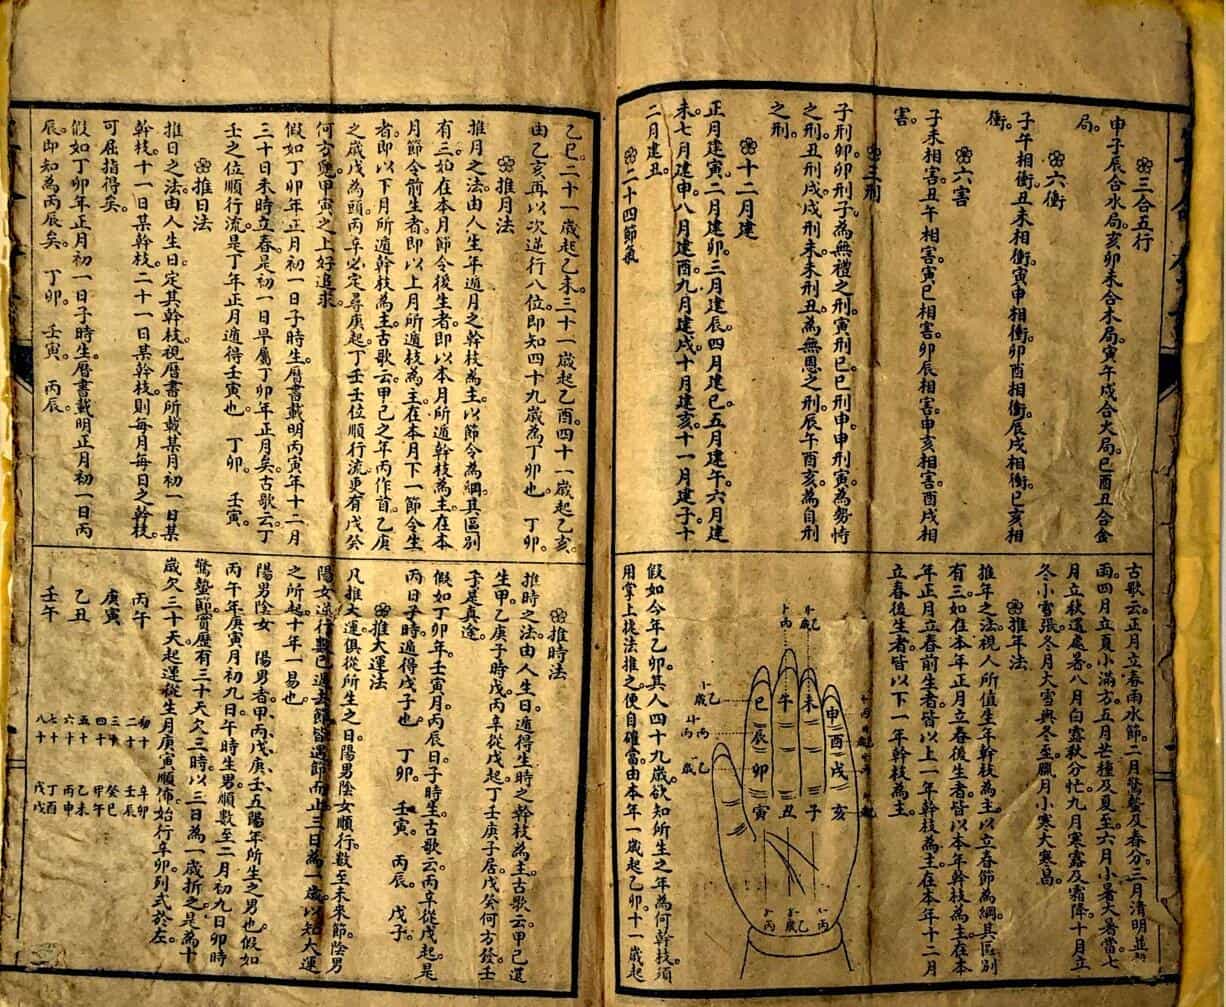 三合五行
申子辰合水局。亥卯未合木局。寅午戌合火局。巳酉丑合金
局。
六衝
子午相衝。丑未相衝。寅申相衝。卯酉相衝。辰戌相衝。巳亥相
衝。
六害
子未相害。丑午相害。寅巳相害。卯辰相害。申亥相害。酉戌相
害。
三刑
子刑卯。卯刑子。為無禮之刑。寅刑巳。巳刑申。申刑寅。為勢恃
之刑。丑刑戌。戌刑未。未刑丑。為無恩之刑。辰午酉亥。為自刑
之刑。
十二月建
正月建寅。二月建卯。三月建辰。四月建巳。五月建午。六月建
未。七月建申。八月建酉。九月建戌。十月建亥。十一月建子。十
二月建丑。
二十四節氣
古歌云。正月立春雨水節。二月驚蟄及春分。三月清明並
雨。四月立夏小滿方。五月芒種及夏至。六月小暑大暑當。七
月立秋還處暑。八月白露秋分忙。九月寒露及霜降。十月立
冬小雪張。冬月大雪與冬至。臘月小寒大寒昌。
推年法
推年之法。視人所值生年幹枝為主。以立春節為綱。其區別
有三。如在本年正月立春後生者。皆以本年幹枝為主。在本
年正月立春前生者。皆以上一年幹枝為主。在本年十二月
立春後生者。皆以下一年幹枝為主。
巳 午 未 申
辰 酉
卯 戌
寅 丑 子 亥
假如今年乙卯。其人四十九歲。欲知所生之年為何幹枝。須
用掌上捷法推之。便自確當。由本年一歲起乙卯。十一歲起
乙巳。二十一歲起乙未。三十一歲起乙酉。四十一歲起乙亥。
由乙亥再以次逆行八位。即知四十九歲為丁卯也。 丁卯。
推月法
推月之法。由人生年遁月之幹枝為主。以節令為綱。其區別
有三。如在本月節令後生者。即以本月所遁幹枝為主。在本
月節令前生者。即以上月所遁枝為主。在本月下一節令生
者。即以下月所遁幹枝為主。古歌云。甲己之年丙作首。乙庚
之歲戊為頭。丙辛必定尋庚起。丁壬壬位順行流。更有戊癸
何方覓。甲寅之上好追求。
假如丁卯年正月初一日子時生。曆書載明丙寅年十二月
三十日未時立春。是初一日早屬丁卯年正月矣。古歌云。丁
壬之位順行流。是丁年正月遁得壬寅也。 丁卯。 壬寅。
推日法
推日之法。由人生日定其幹枝。視曆書所載某月初一日某
幹枝。十一日某幹枝。二十一日某幹枝。則每月每日之幹枝。
可屈指得矣。
假如丁卯年正月初一日子時生。曆書載明正月初一日丙
辰。即知為丙辰矣。 丁卯。 壬寅。 丙辰。
推時法
推時之法。由人生日遁得生時之幹枝為主。古歌云。甲己還
生甲。乙庚子時戊。丙辛從戊起。丁壬庚子居。戊癸何方發。壬
子是真途。
假如丁卯年。壬寅月。丙辰日。子時生。古歌云。丙辛從戊起。是
丙日子時遁得戊子也。 丁卯。 壬寅。 丙辰。 戊子。
推大運法
凡推大運。俱從所生之日。陽男陰女順行。數至未來節。陰男
陽女逆行。數已過去節。皆遇節而止。三日為一歲。以知大運
之所起。十年一易也。
陽男陰女 陽男者。甲、丙、戊、庚、壬五陽年所生之男也。假如
丙午年庚寅月初九日午時生男。順數至二月初九日卯時
驚蟄節。實歷有三十天欠三時。以三日為一歲折之。是為十
歲欠三十天起運。從生月庚寅順佈。始行辛卯。列式於左。
丙午 初十 辛卯
二十 壬辰
庚寅 三十 癸巳
四十 甲午
乙丑 五十 乙未
六十 丙申
壬午 七十 丁酉
八十 戊戌